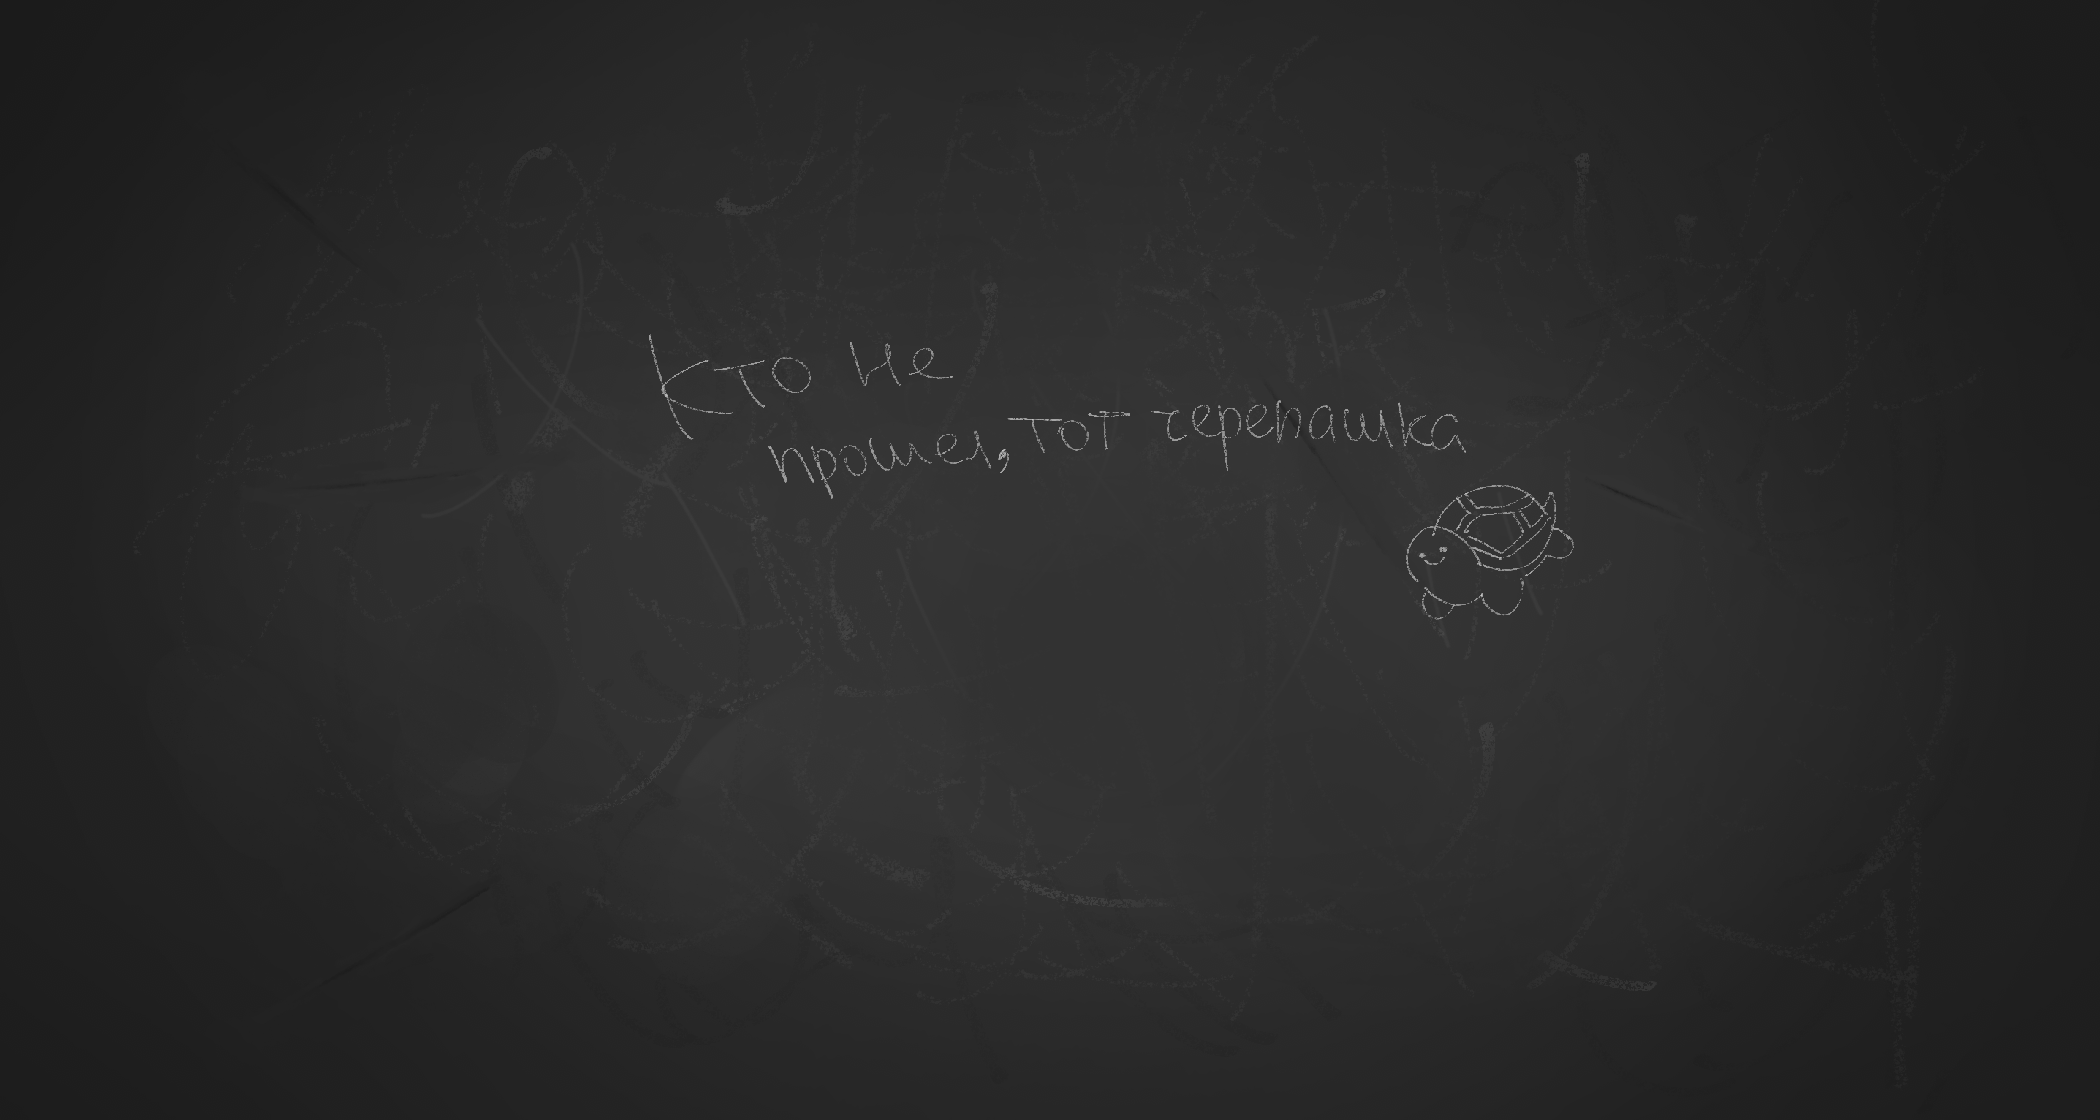 Кто не
прошел, тот черепашка